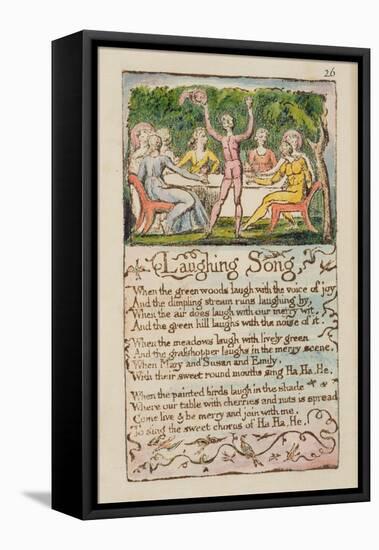 26
Laughing Song,
When the green woods laugh with the voice of joy
And the dimpling stream runs laughing by,
When the air does laugh with our merry wit,
And the green hill laughs with the noise of it.
When the meadows laugh with lively green
And the grasshopper laughs in the merry scene,
When Mary and Susan and Emily,
With their sweet round mouths sing Ha, Ha, He,
When the painted birds laugh in the shade
Where our table with cherries and nuts is spread
Come live & be merry and join with me,
To sing the sweet chorus of Ha, Ha, He,